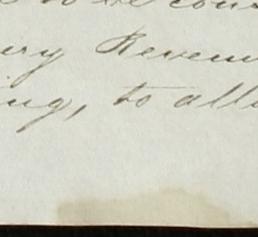 to be cou
ry Reven
ing, to all